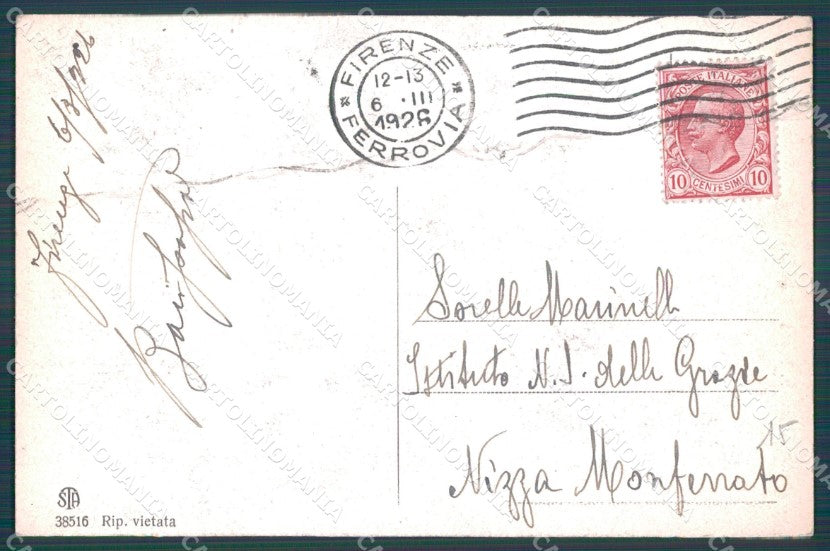 Firenze 6/3/926
FIRENZE
12-13
6 · III
1926
FERROVIA
POSTE ITALIANE
10 CENTESIMI 10
Sorelle Marinelli
Istituto N. S. delle Grazie
Nizza Monferrato
15
STA
38516 Rip. vietata
CARTOLINOMANIA